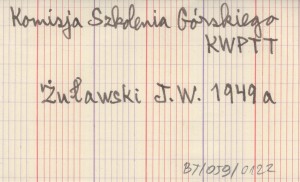 Komisja Szkolenia Górskiego
KWPTT
Żuławski J.W. 1949a
B7/059/0122